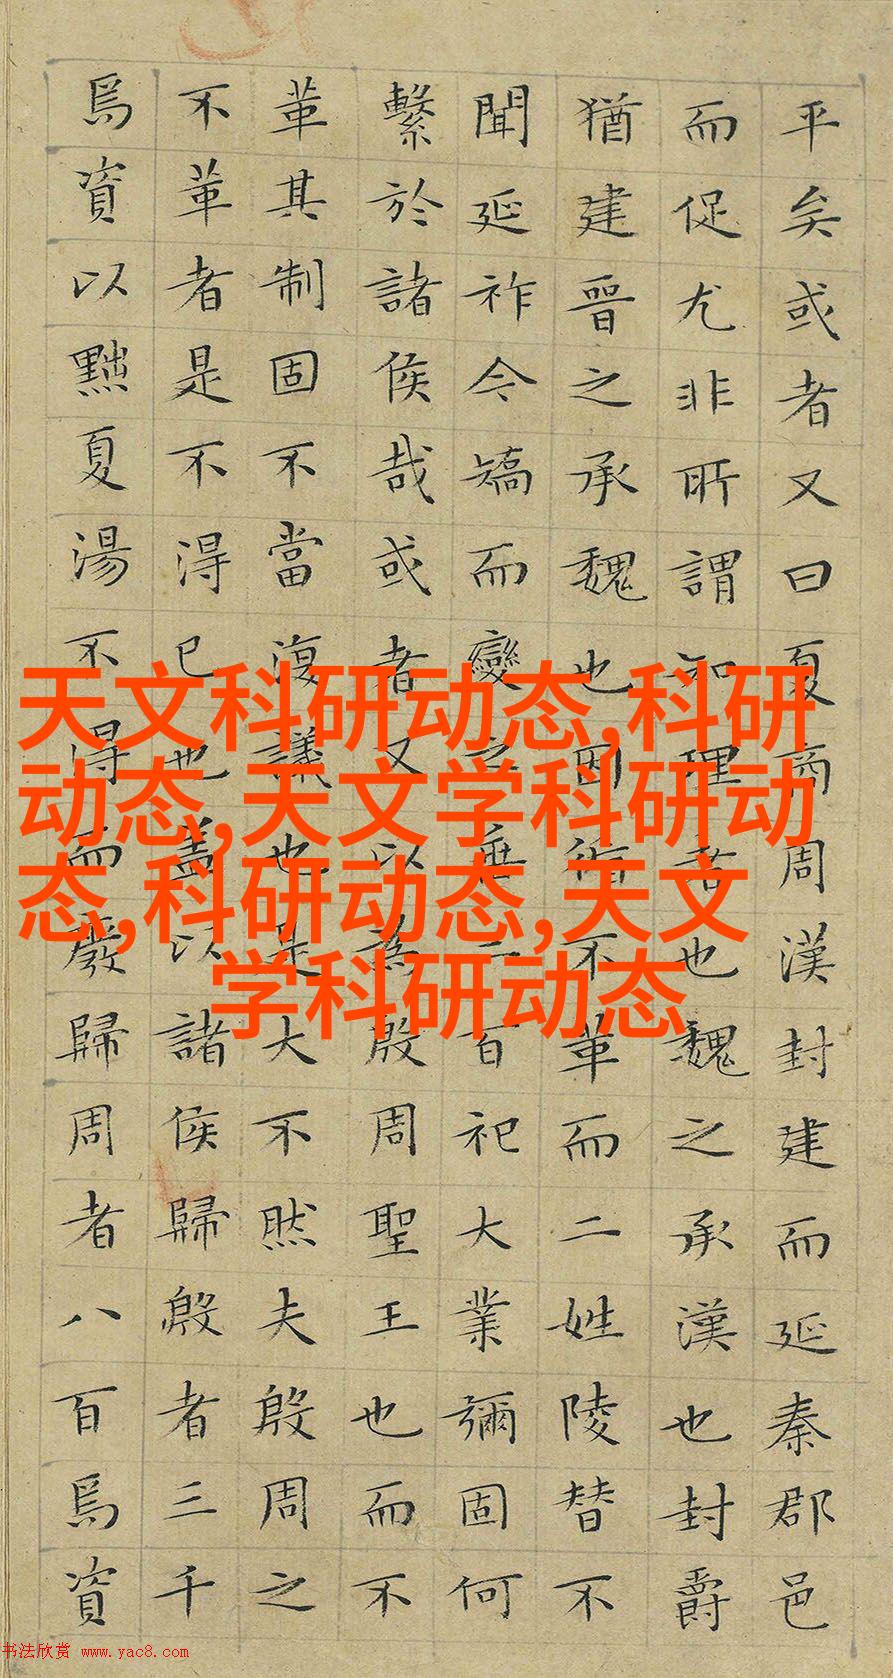 平矣或者又曰夏商周漢封建而延秦郡邑
而促尤非所謂知理者也魏之承漢也封爵
猶建晉之承魏也因循不革而二姓陵替不
聞延祚今矯而變之垂二百祀大業彌固何
繫於諸侯哉或者又以為殷周聖王也而不
革其制固不當復議也是大不然夫殷周之
不革者是不得已也蓋以諸侯歸殷者三千
焉資以黜夏湯不得而廢歸周者八百焉資
天文科研动态,科研
动态,天文学科研动
态,科研动态,天文
学科研动态
书法欣赏 www.yac8.com